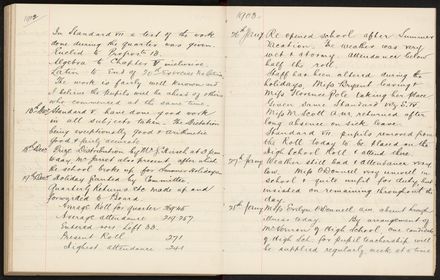 1902
In Standard VII a test of the work
done during the quarter was given.
Euclid to Propos'n 13.
Algebra to Chapter V inclusive.
Latin to End of 20th Exercise
The work is fairly well known and
it behind the pupils will be ahead of others
who commenced at the same time.
Standard V. have done good work
in all subjects taken. The Dictation
being exceptionally good & arithmetic
good & fairly accurate.
Prize Distribution by Mr P. at 3 pm
today. Mr also present, after which
the school broke up for Summer Holidays
Holiday granted by Committee.
Quarterly Returns etc made up and
forwarded to Board.
Average Roll for quarter
Average attendance
Entered Left 33.
Present Roll 271
Highest attendance 241
1903.
26th Jany Re-opened school after Summer
Vacation. The weather was very
wet & stormy. Attendance below
half the roll.
Staff has been altered during the
holidays, Miss Bryant leaving &
Miss Pole taking her place
Given same Standard viz
Miss M. Scott A.n returned after
long absence on Sick leave.
Standard VII. pupils removed from
the Roll today to be placed on the
High School Roll & attend there.
27th Jany Weather still bad & attendance very
low. Miss O'Donnell very unwell in
school & quite unfit for duty, but
insisted on remaining throughout the
day.
28th Jany Miss Evelyn O'Donnell is absent through
illness today. By arrangement of
of High School, one
of High Sch. for pupil teachership will
be supplied regularly each at a time